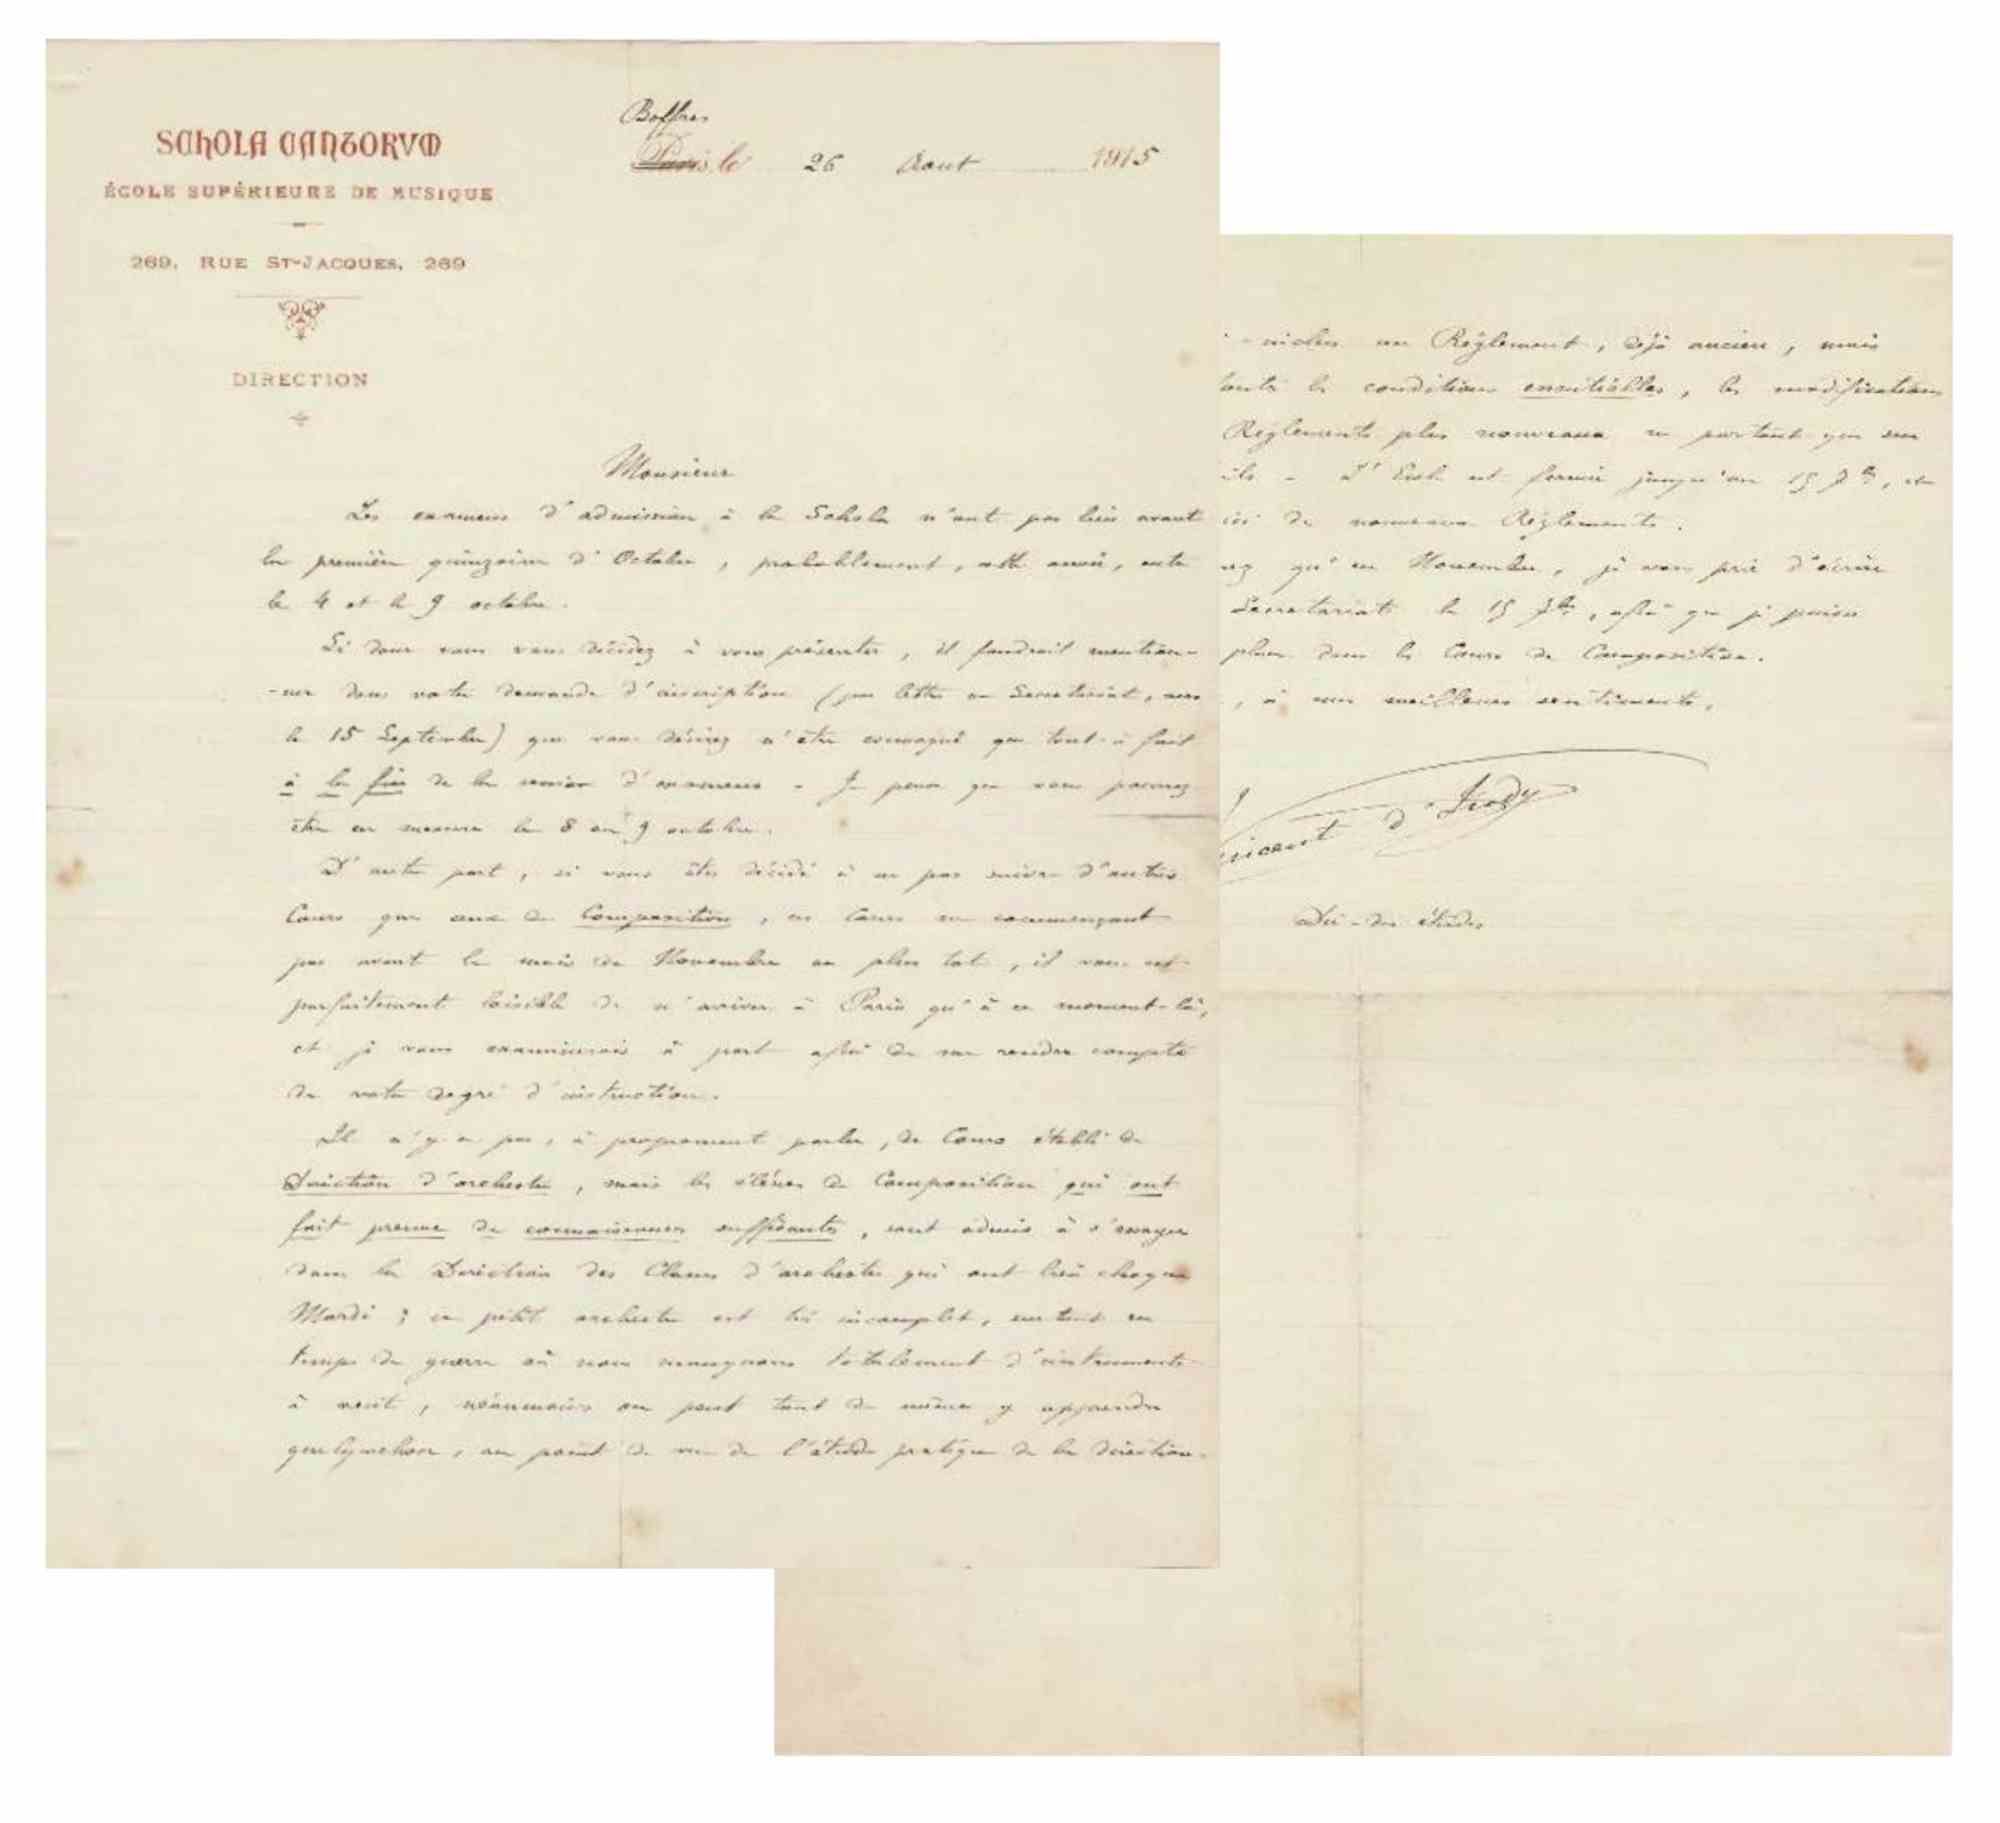 SCHOLA CANTORVM
ÉCOLE SUPÉRIEURE DE MUSIQUE
269, RUE ST-JACQUES, 269
DIRECTION
Boffres
Paris le 26 Aout 1915
Monsieur
Les examens d'admission à la Schola n'ont pas lieu avant
la première quinzaine d'Octobre, probablement, cette année, entre
le 4 et le 9 octobre.
Si donc vous vous décidez à vous présenter, il faudrait mention-
-ner dans votre demande d'inscription (par lettre au Secrétariat, vers
le 15 Septembre) que vous désirez n'être convoqué que tout-à fait
à la fin de la session d'examens - Je pense que vous pourrez
être en mesure le 8 ou 9 octobre.
D'autre part, si vous êtes décidé à ne pas suivre d'autres
Cours que ceux de Composition, ces Cours ne commençant
pas avant le mois de Novembre au plus tot, il vous est
parfaitement loisible de n'arriver à Paris qu'à ce moment-là,
et je vous examinerais à part afin de me rendre compte
de votre degré d'instruction.
Il n'y a pas, à proprement parler, de Cours établi de
Direction d'orchestre, mais les élèves de Composition qui ont
fait preuve de connaissances suffisantes, sont admis à s'essayer
dans la Direction des Classes d'orchestre qui ont lieu chaque
Mardi ; ce petit orchestre est très incomplet, surtout en
temps de guerre où nous manquons totalement d'instruments
à vent, néanmoins on peut tout de même y apprendre
quelquechose, au point de vue de l'étude pratique de la direction.
un Règlement, déjà ancien, mais
les conditions essentielles, les modifications
Règlements plus nouveaux ne portant que sur
- L'Ecole est fermée jusqu'au 15 7bre, et
ici de nouveaux Règlements.
qu'en Novembre, je vous prie d'écrire
Secrétariat le 15 7bre, afin que je puisse
place dans les Cours de Composition.
, à mes meilleurs sentiments,
Vincent d'Indy
Dir - des études